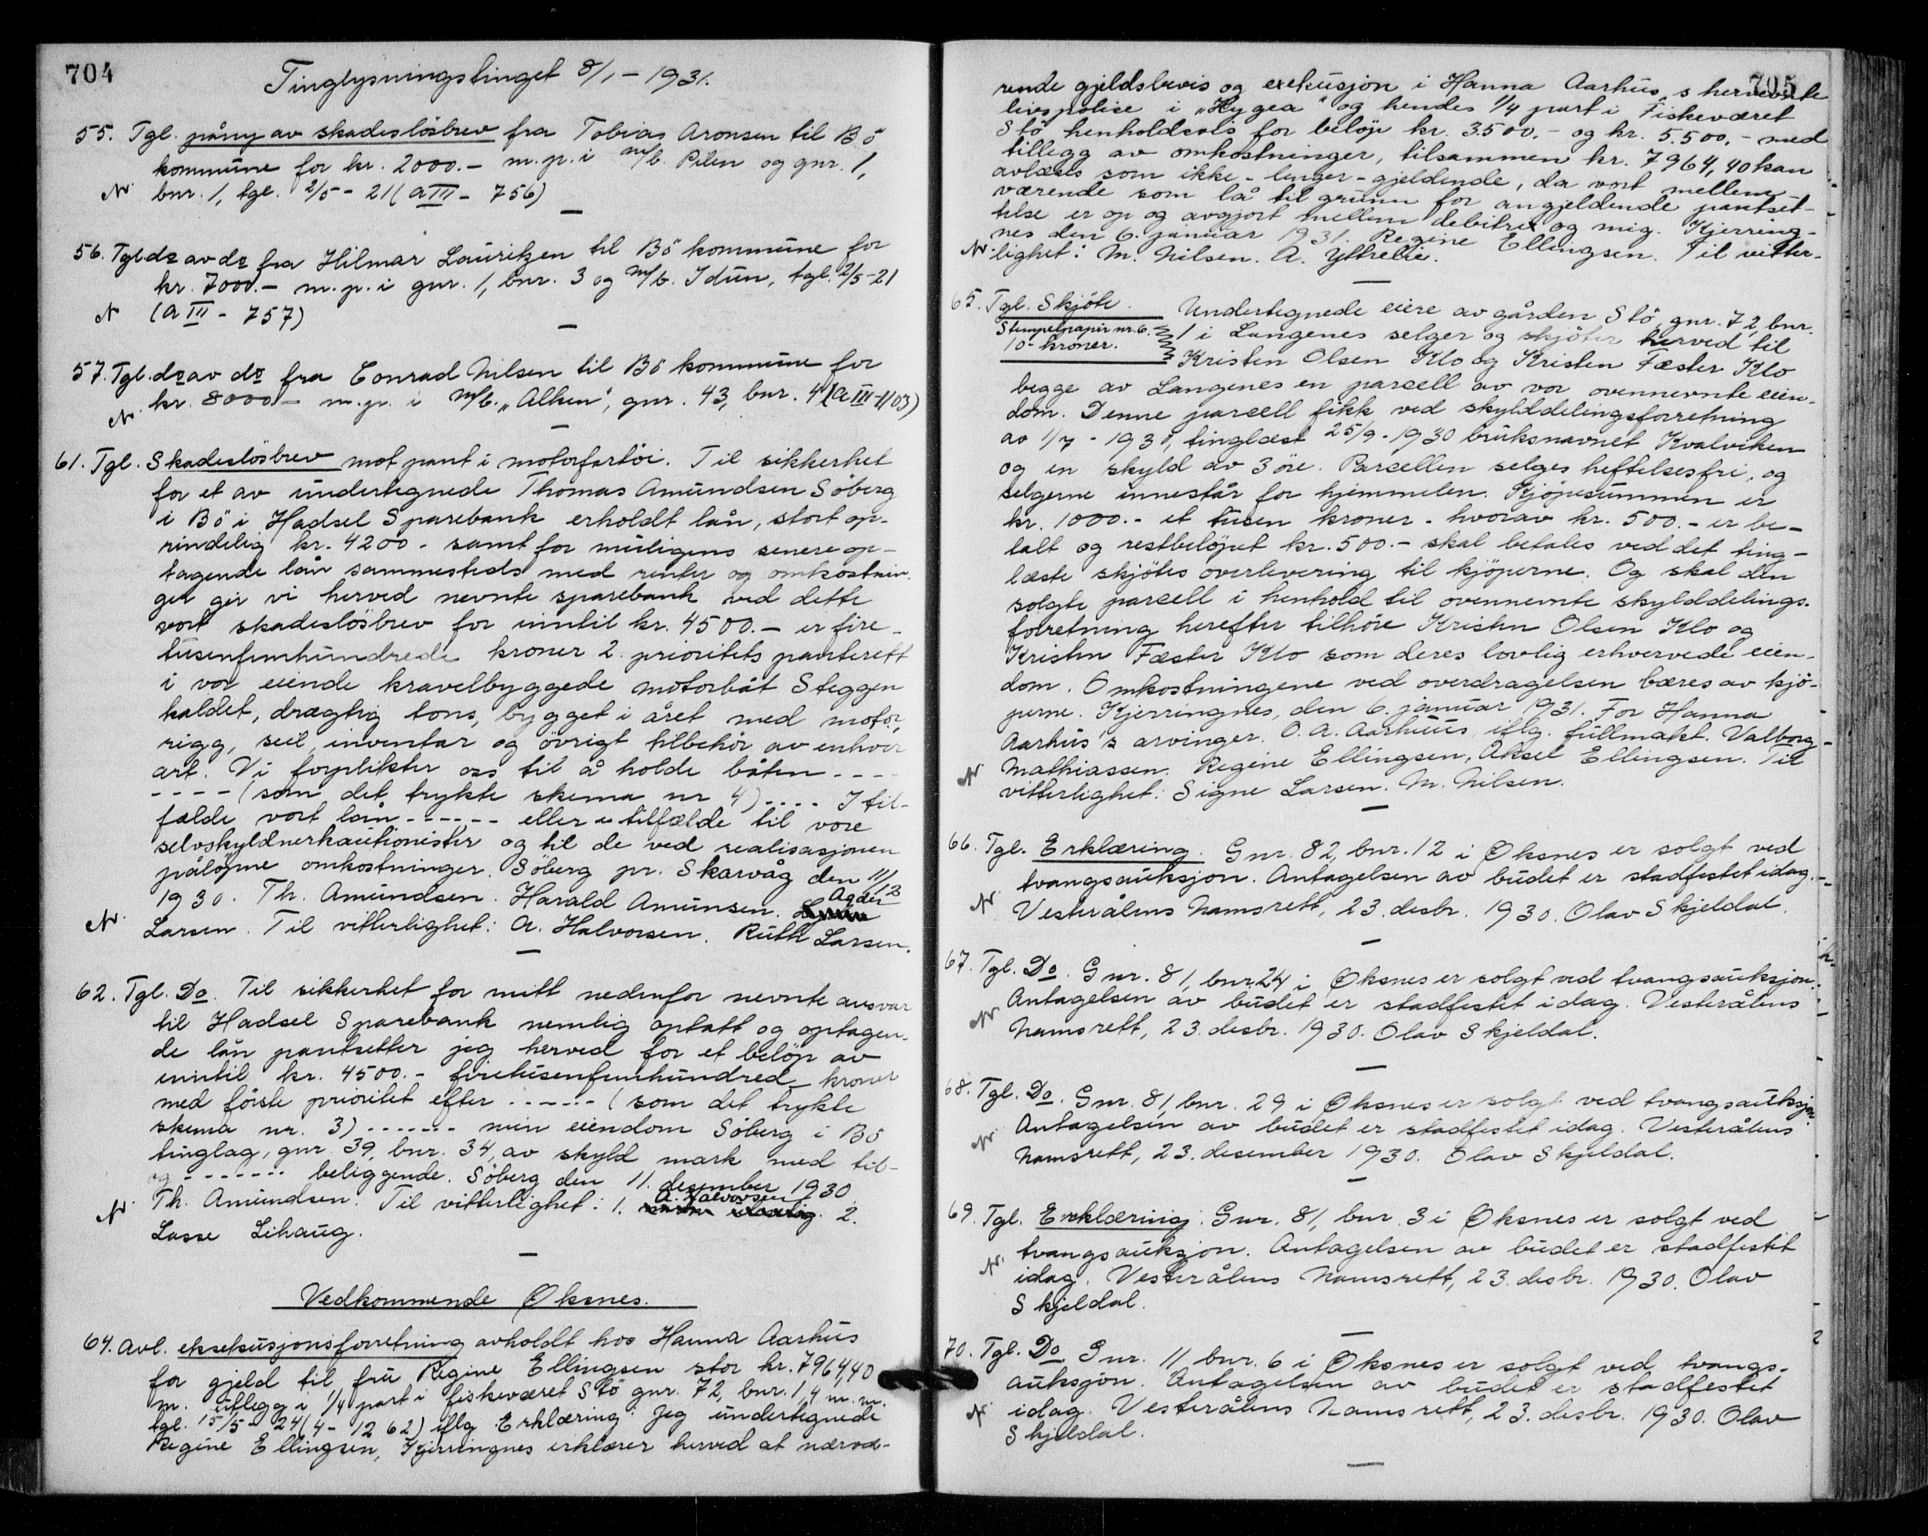 704
Tinglysningstinget 8/1 - 1931.
55. Tgl. påny av skadeslösbrev fra Tobias Aronsen til Bö
kommune for kr. 2000.- m.p. i m/b. Pilen og gnr. 1,
N bnr. 1, tgl. 2/5 - 21 (A III - 756)
56. Tgl. do av do fra Hilmar Lauritzen til Bö kommune for
kr. 7000.- m.p. i gnr. 1, bnr. 3 og m/b. Idun, tgl. 2/5-21
N (A III - 757)
57. Tgl. do av do fra Conrad Nilsen til Bö kommune for
N. kr. 8000.- m.p. i m/b. "Alken", gnr. 43, bnr. 4 (A III-1103)
61. Tgl. Skadeslösbrev mot pant i motorfartöi. Til sikkerhet
for et av undertegnede Thomas Amundsen Söberg
i Bö i Hadsel Sparebank erholdt lån, stort op-
rindelig kr. 4200.- samt for muligens senere op-
tagende lån sammesteds med renter og omkostnin-
ger gir vi herved nevnte sparebank ved dette
vort skadeslösbrev for inntil kr. 4500.- er fire-
tusenfemhundrede kroner 2. prioritets panterett
i vor eiende kravelbyggede motorbåt Steggen
kaldet, drægtig tons, bygget i året med motor,
rigg, seil, inventar og övrigt tilbehör av enhver
art. Vi forplikter oss til å holde båten - - - -
- - - - (som det trykte skema nr. 4) - - - - I til-
fælde vort lån - - - - - eller i tilfælde til vore
selvskyldnerkautionister og til de ved realisasjonen
pålöpne omkostninger. Söberg pr. Skarvåg den 11/12
1930. Th. Amundsen. Harald Amunsen. Agder
N. Larsen. Til vitterlighet: A. Halvorsen. Ruth Larsen.
62. Tgl. Do. Til sikkerhet for mitt nedenfor nevnte ansvar
til Hadsel Sparebank nemlig optatt og optagen-
de lån pantsetter jeg herved for et beløp av
inntil kr. 4500.- firetusenfemhundred kroner
med förste prioritet efter - - - - - (som det trykte
skema nr. 3) - - - - - - min eiendom Söberg i Bö
tinglag, gnr. 39, bnr. 34, av skyld mark med til-
og - - - - - - - beliggende. Söberg den 11. desember 1930
N. Th. Amundsen. Til vitterlighet: 1. A. Halvorsen 2.
Lasse Lihaug.
Vedkommende Øksnes.
64. Avl. eksekusjonsforretning avholdt hos Hanna Aarhus
for gjeld til fru Regine Ellingsen stor kr. 7964,40
m. utlegg i 1/4 part i fiskeværet Stö gnr. 72, bnr. 1, 4 m. m.
tgl. 15/5 - 24 (4 - 1262) iflg. Erklæring: Jeg undertegnede
Regine Ellingsen, Kjerringnes erklærer herved at nærvæ-
705
rende gjeldsbevis og exekusjon i Hanna Aarhus's hernevnte
livspolise i "Hygea" og hendes 1/4 part i Fiskeværet
Stö henholdsvis for beløp kr. 3500.- og kr. 5.500.- med
tillegg av omkostninger, tilsammen kr. 7964,40 kan
avlæses som ikke - lenger - gjeldende, da vort mellem-
værende som lå til grunn for angjeldende pantset-
telse er op og avgjort mellem debitrix og mig. Kjerring-
nes den 6. januar 1931. Regine Ellingsen. Til vitter-
N. lighet: M. Nilsen. A. Yttrelie.
65. Tgl. Skjöte. Undertegnede eiere av gården Stö, gnr. 72, bnr.
Stempelpapir nr. 6. 1 i Langenes selger og skjöter herved til
10- kroner. Kristen Olsen Klo og Kristen Fæster Klo
begge av Langenes en parsell av vor ovennevnte eien-
dom. Denne parsell fikk ved skylddelingsforretning
av 1/7 - 1930, tinglæst 25/9 - 1930 bruksnavnet Kvalviken
og en skyld av 3 öre. Parsellen selges heftelsesfri, og
selgerne innestår for hjemmelen. Kjöpesummen er
kr. 1000.- et tusen kroner - hvorav kr. 500.- er be-
talt og restbelöpet kr. 500.- skal betales ved det ting-
læste skjötes overlevering til kjöperne. Og skal den
solgte parsell i henhold til ovennevnte skylddelings-
forretning herefter tilhöre Kristen Olsen Klo og
Kristen Fæster Klo som deres lovlig erhvervede eien-
dom. Omkostningene ved overdragelsen bæres av kjö-
perne. Kjerringnes, den 6. januar 1931. For Hanna
Aarhus's arvinger. O. A. Aarhuus iflg. fullmakt. Valborg
N Mathiassen. Regine Ellingsen, Aksel Ellingsen. Til
vitterlighet: Signe Larsen. M. Nilsen.
66. Tgl. Erklæring. Gnr. 82, bnr. 12 i Øksnes er solgt ved
tvangsauksjon. Antagelsen av budet er stadfestet idag.
N. Vesterålens Namsrett, 23. desbr. 1930. Olav Skjeldal.
67. Tgl. Do. Gnr. 81, bnr. 24 i Øksnes er solgt ved tvangsauksjon.
Antagelsen av budet er stadfestet idag. Vesterålens
N. Namsrett, 23. desbr. 1930. Olav Skjeldal.
68. Tgl. Do. Gnr. 81, bnr. 29 i Øksnes er solgt ved tvangsauksjon.
Antagelsen av budet er stadfestet idag. Vesterålens
N. Namsrett, 23. desember 1930. Olav Skjeldal.
69. Tgl. Erklæring. Gnr. 81, bnr. 3 i Øksnes er solgt ved
tvangsauksjon. Antagelsen av budet er stadfestet
N. idag. Vesterålens Namsrett, 23. desbr. 1930. Olav
Skjeldal.
70. Tgl. Do. Gnr. 11, bnr. 6 i Øksnes er solgt ved tvangs-
auksjon. Antagelsen av budet er stadfestet
N idag. Vesterålens Namsrett, 23. desbr. 1930. Olav
Skjeldal.